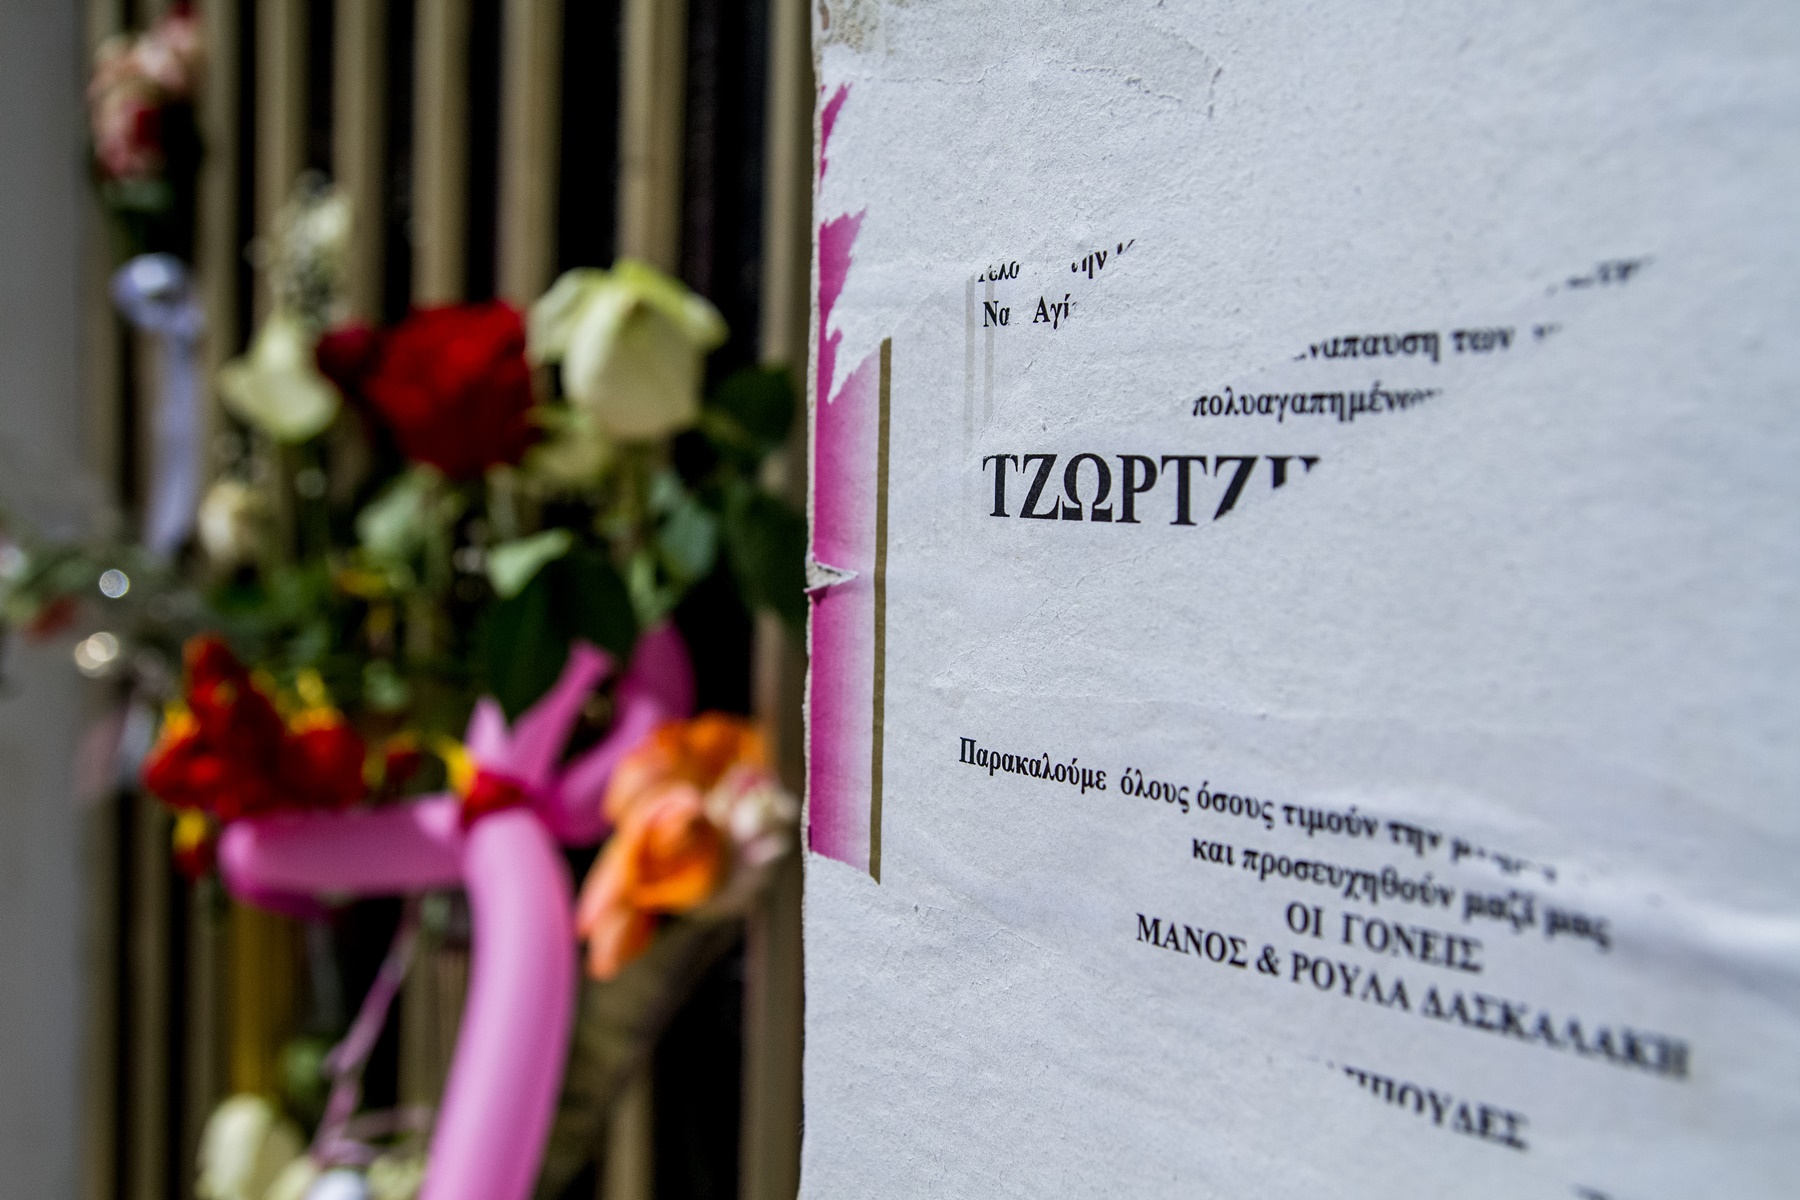 Να Αγί
των
πολυαγαπημένων
ΤΖΩΡΤΖΙ
Παρακαλούμε όλους όσους τιμούν την
και προσευχηθούν μαζί μας
ΟΙ ΓΟΝΕΙΣ
ΜΑΝΟΣ & ΡΟΥΛΑ ΔΑΣΚΑΛΑΚΗ